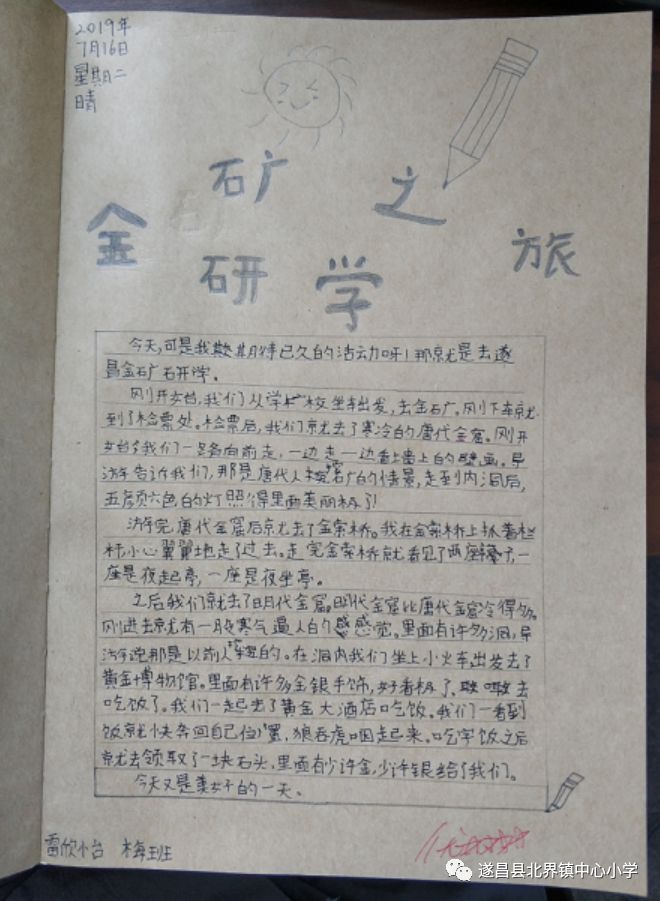 2019年
7月16日
星期二
晴
金矿之旅
研学
今天,可是我期待已久的活动呀!那就是去遂
昌金矿研学。
刚开始,我们从学校坐车出发,去金矿。刚下车就
到了检票处。检票后,我们就去了寒冷的唐代金窟。刚开
始我们一路向前走,一边走一边看墙上的壁画。导
游告诉我们,那是唐代人挖矿的情景,走到内洞后,
五颜六色的灯照得里面美丽极了!
游完唐代金窟后就去了金索桥。我在金索桥上抓着栏
杆小心翼翼地走了过去。走完金索桥就看见了两座亭子,一
座是夜起亭,一座是夜坐亭。
之后我们就去了明代金窟。明代金窟比唐代金窟冷得多。
刚进去就有一股寒气逼人的感觉。里面有许多洞,导
游说那是以前人挖的。在洞内我们坐上小火车出发去了
黄金博物馆。里面有许多金银手饰,好看极了。 去
吃饭了。我们一起去了黄金大酒店吃饭。我们一看到
饭就快奔回自己位置,狼吞虎咽起来。吃完饭之后
就去领取了一块石头,里面有少许金,少许银给了我们。
今天又是美好的一天。
雷欣 梅班
遂昌县北界镇中心小学